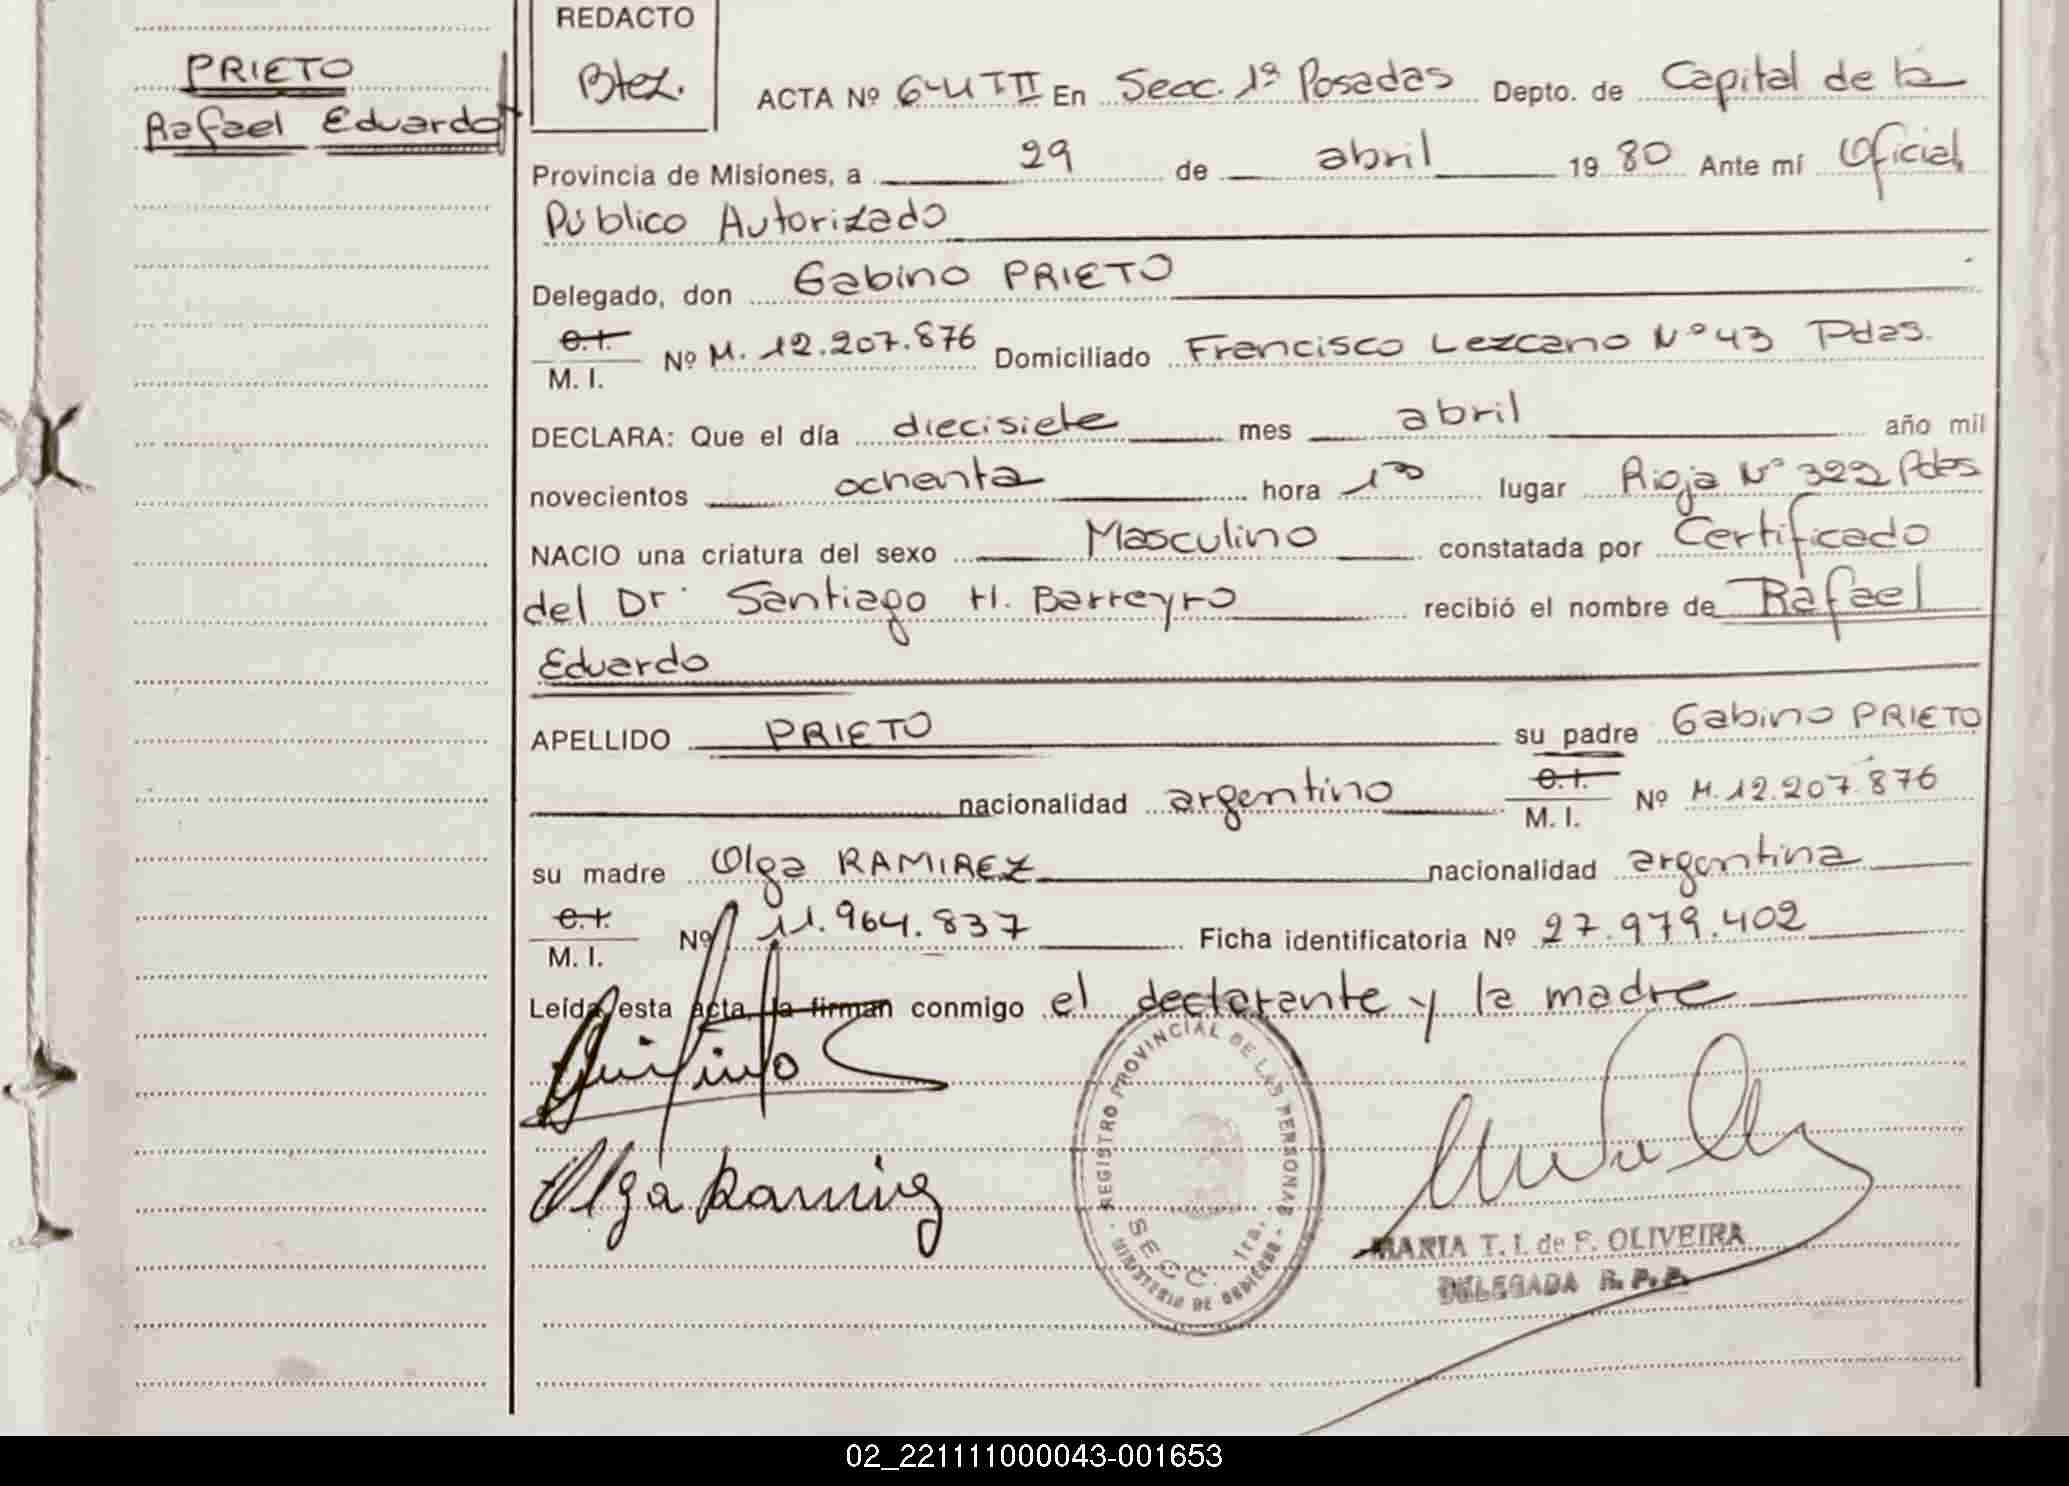 PRIETO
Rafael Eduardo
REDACTO
Btez.
ACTA Nº 64 TII En Secc. 1ª Posadas Depto. de Capital de la
Provincia de Misiones, a 29 de abril 1980 Ante mí Oficial
Público Autorizado
Delegado, don Gabino PRIETO
C.I.
M. I. Nº M. 12.207.876 Domiciliado Francisco Lezcano Nº 43 Pdas.
DECLARA: Que el día diecisiete mes abril año mil
novecientos ochenta hora lugar Rioja Nº 322 Pdas
NACIO una criatura del sexo Masculino constatada por Certificado
del Dr. Santiago H. Barreyro recibió el nombre de Rafael
Eduardo
APELLIDO PRIETO su padre Gabino PRIETO
nacionalidad argentino C.I. M. I. Nº M. 12.207.876
su madre Olga RAMIREZ nacionalidad argentina
C.I.
M. I. Nº 11.964.837 Ficha identificatoria Nº 27.979.402
Leída esta acta, la firman conmigo el declarante y la madre
Olga Ramirez
REGISTRO PROVINCIAL DE LAS PERSONAS
SECC. 1ra.
MINISTERIO DE GOBIERNO
MARIA T. I. de F. OLIVEIRA
DELEGADA R. P. P.
02_221111000043-001653